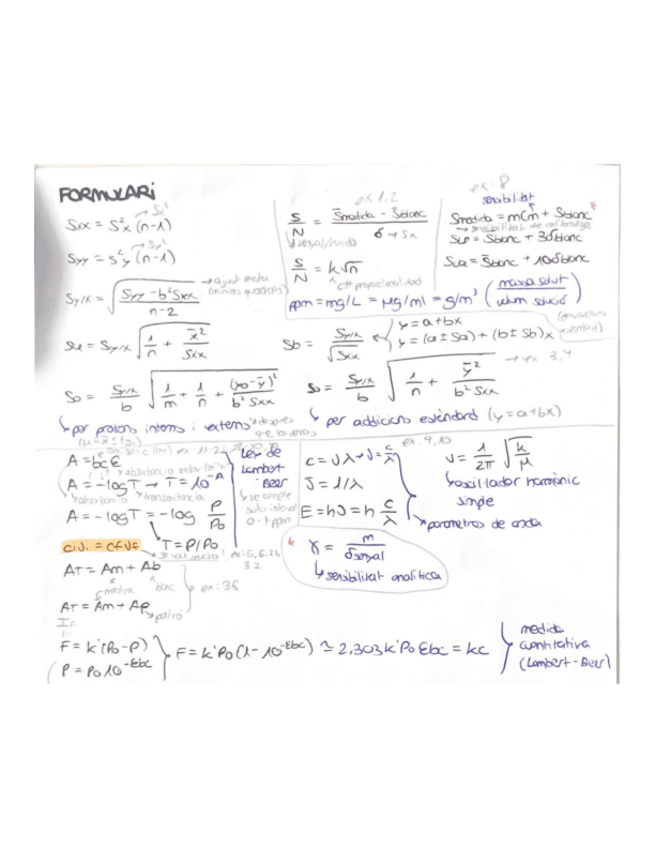 FORMULARI
Sxx = S²x (n-1)
→ Sx²
Syy = s²y (n-1)
→ Sy²
Sy/x = √((Syy - b²Sxx)/(n-2))
→ ajust recta
(mínims quadrats)
Sa = Sy/x √(1/n + x̄²/Sxx)
Sb = Sy/x / √Sxx
y = a+bx
y = (a ± Sa) + (b ± Sb)x
(desviacions
estàndard)
S0 = Sy/x / b √(1/m + 1/n + (y0 - ȳ)²/(b² Sxx))
↳ per patrons interns i externs
S0 = Sy/x / b √(1/n + ȳ²/(b² Sxx))
→ ex 3,4
↳ per addicions estàndard (y=a+bx)
ex 1.2
S/N = (S̄mostra - S̄blanc)/σ → Sx
↳ senyal/soroll
S/N = k√n
ctt proporcionalitat
ppm = mg/L = μg/ml = g/m³ (massa solut / volum solució)
ex: 8
sensibilitat
Smostra = mCm + Sblanc *
→ sensibilitat de calibratge
SLD = Sblanc + 3σblanc
SLQ = S̄blanc + 10σblanc
A = bcε
A = -log T → T = 10^-A
↳ absorbància
transmitància
A = -log T = -log P/P0
T = P/P0
ciVi = cfVf
Llei de
Lambert
Beer
↳ se cumple
solo interval
0 - 7 ppm
AT = Am + Ab
mostra
blanc
ex: 36
AT = Am + Ap
→ patró
ex. 9,10
c = νλ → ν = c/λ
ν̄ = 1/λ
E = hν = h c/λ
↳ paràmetres de onda
ν = 1/2π √(k/μ)
↳ oscil·lador harmònic
simple
* γ = m/σsenyal
↳ sensibilitat analítica
IF
F = k'(P0 - P)
P = P0 10^-εbc
F = k'P0 (1 - 10^-εbc) ≃ 2,303 k'P0 εbc = kc
medida
cuantitativa
(Lambert-Beer)